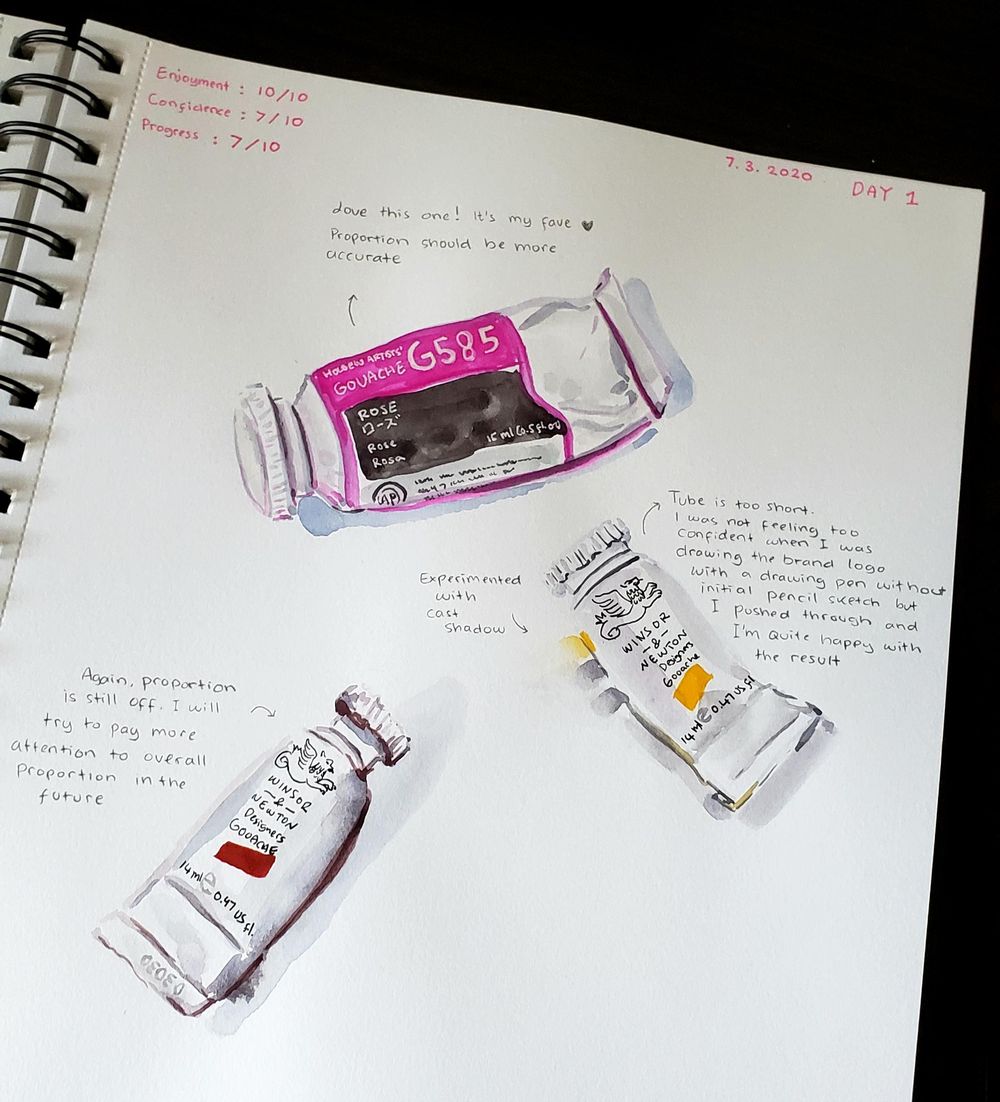 Enjoyment : 10/10
Confidence : 7/10
Progress : 7/10
7.3.2020
DAY 1
Love this one! It's my fave ♥
Proportion should be more
accurate
HOLBEIN ARTISTS'
GOUACHE G585
ROSE
ローズ
Rose
Rosa
15 ml (0.5 fl oz)
AP
Tube is too short.
I was not feeling too
confident when I was
drawing the brand logo
with a drawing pen without
initial pencil sketch but
I pushed through and
I'm quite happy with
the result
Experimented
with
cast
shadow
WINSOR
-&-
NEWTON
Designers
Gouache
14 ml e 0.47 US fl.
Again, proportion
is still off. I will
try to pay more
attention to overall
proportion in the
future
WINSOR
-&-
NEWTON
Designers
GOUACHE
14 ml e 0.47 US fl.